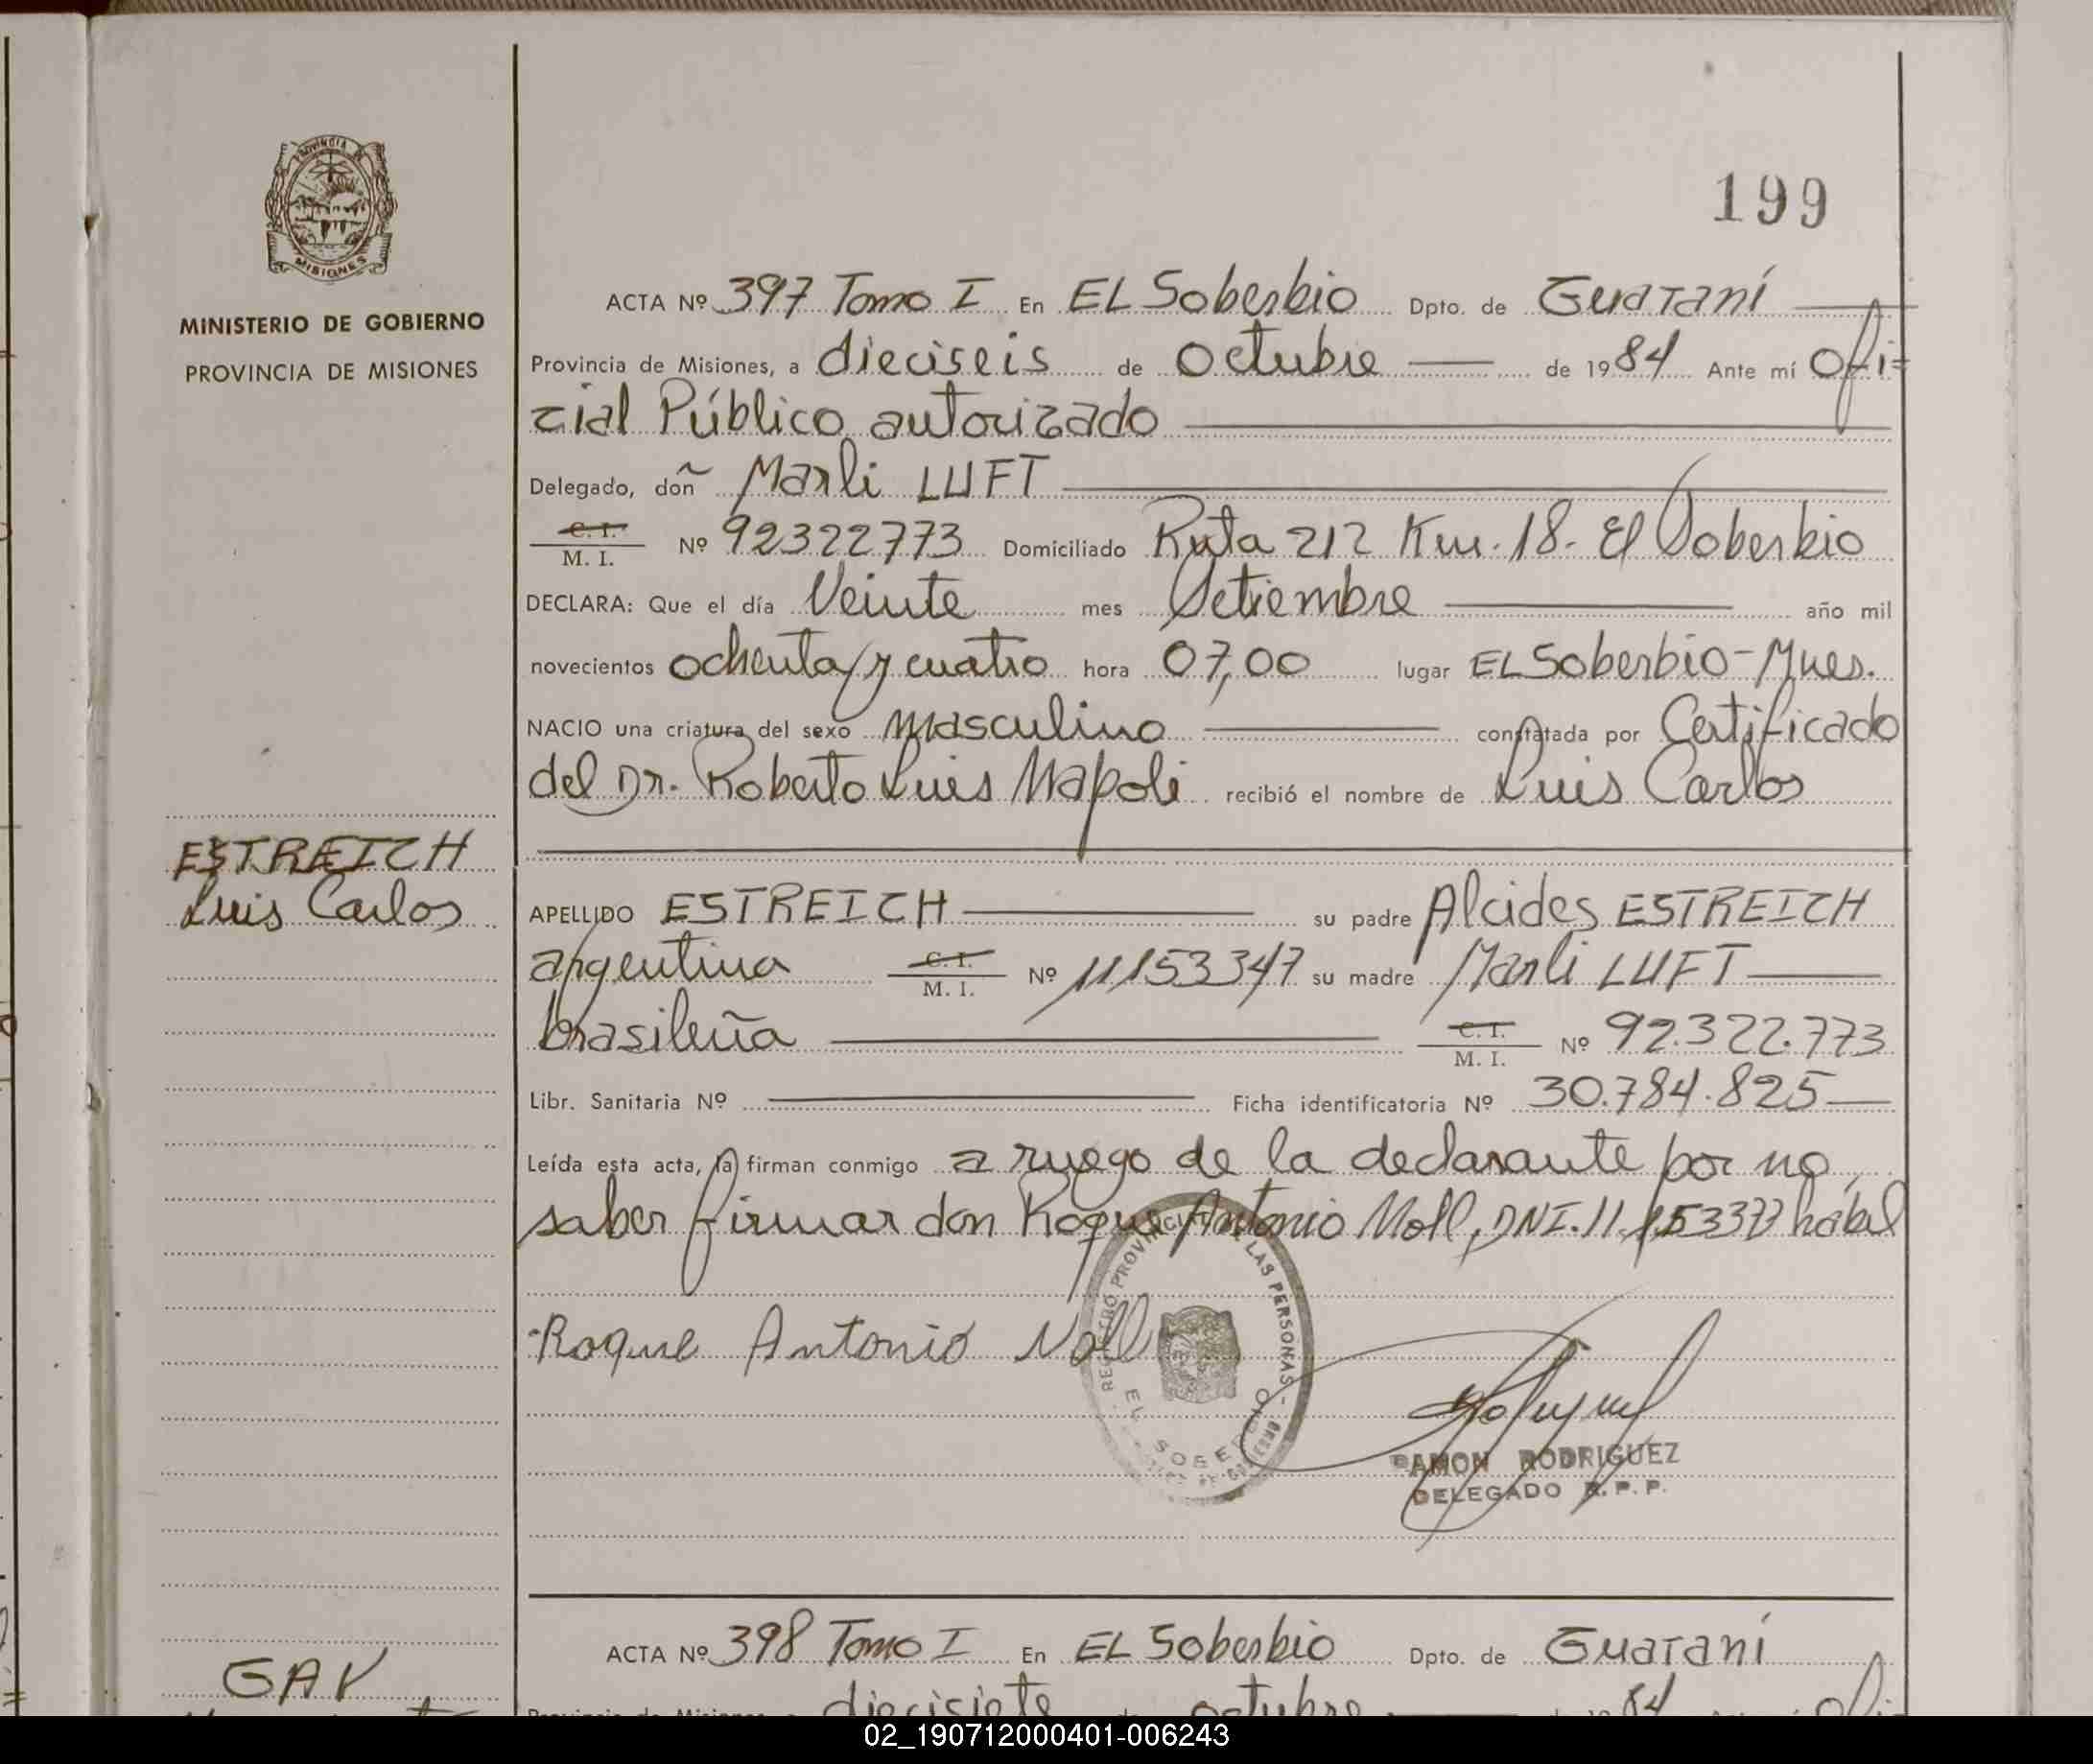 PROVINCIA DE
MISIONES
MINISTERIO DE GOBIERNO
PROVINCIA DE MISIONES
199
ACTA Nº 397 Tomo I En EL Soberbio Dpto. de Guaraní
Provincia de Misiones, a dieciseis de Octubre de 1984 Ante mí Ofi=
cial Público autorizado
Delegado, doñ Marli LUFT
C. I.
M. I. Nº 92322773 Domiciliado Ruta 212 Km. 18. El Soberbio
DECLARA: Que el día Veinte mes Setiembre año mil
novecientos ochenta y cuatro hora 07,00 lugar EL Soberbio-Mnes.
NACIO una criatura del sexo masculino constatada por Certificado
del Dr. Roberto Luis Napoli recibió el nombre de Luis Carlos
ESTREICH
Luis Carlos
APELLIDO ESTREICH su padre Alcides ESTREICH
argentina C. I.
M. I. Nº 11153347 su madre Marli LUFT
brasileña C. I.
M. I. Nº 92.322.773
Libr. Sanitaria Nº Ficha identificatoria Nº 30.784.825
Leída esta acta, la firman conmigo a ruego de la declarante por no
saber firmar don Roque Antonio Noll, DNI. 11.153377 hábil
Roque Antonio Noll
REGISTRO PROVINCIAL DE LAS PERSONAS
EL SOBERBIO
RAMON RODRIGUEZ
DELEGADO R.P.P.
ACTA Nº 398 Tomo I En EL Soberbio Dpto. de Guaraní
GAV
Provincia de Misiones, a diecisiete de octubre de 1984 Ofi-
02_190712000401-006243